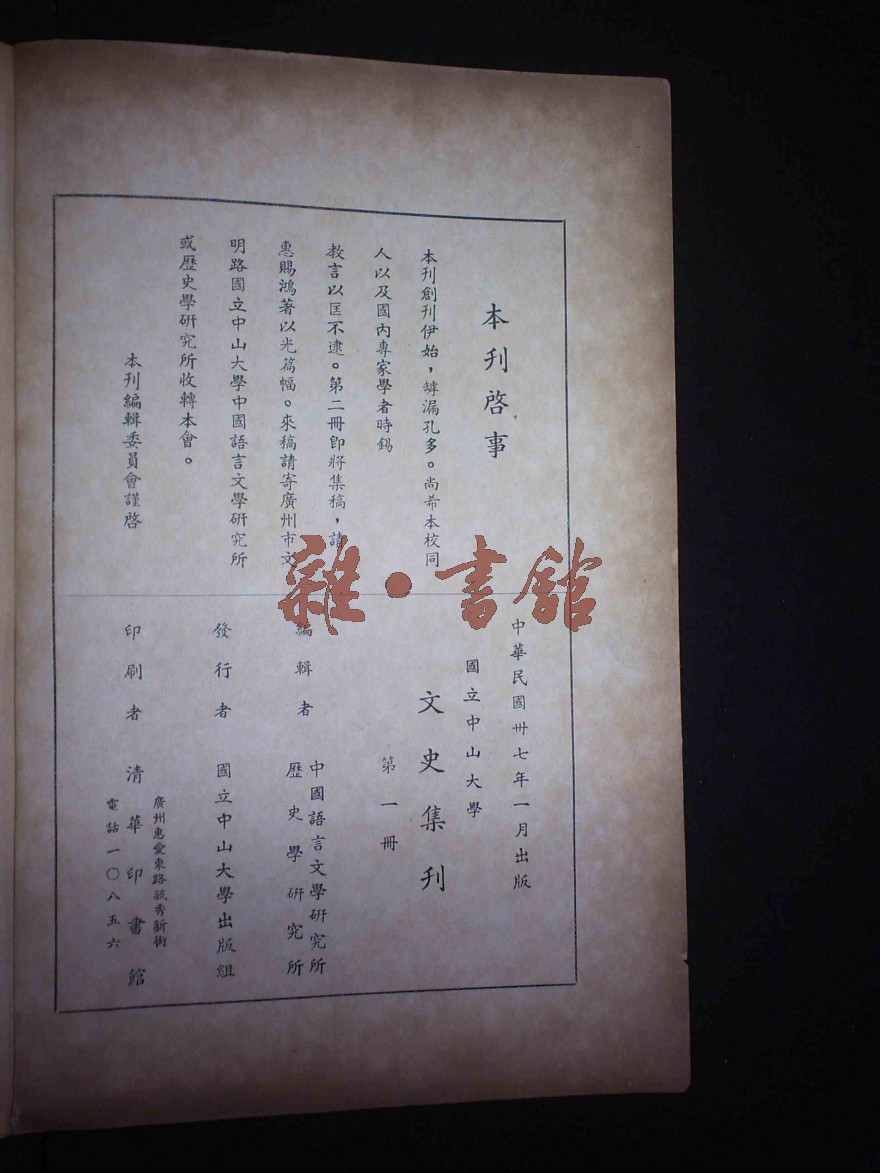 本刊啓事
本刊創刊伊始，罅漏孔多。尚希本校同
人以及國內專家學者時錫
教言以匡不逮。第二冊卽將集稿，請
惠賜鴻著以光篇幅。來稿請寄廣州市文
明路國立中山大學中國語言文學研究所
或歷史學研究所收轉本會。
本刊編輯委員會謹啓
中華民國卅七年一月出版
國立中山大學
文史集刊
第一冊
編輯者 中國語言文學研究所
歷史學研究所
發行者 國立中山大學出版組
廣州惠愛東路毓秀新街
印刷者 清華印書館
電話一〇八五六
雜·書館